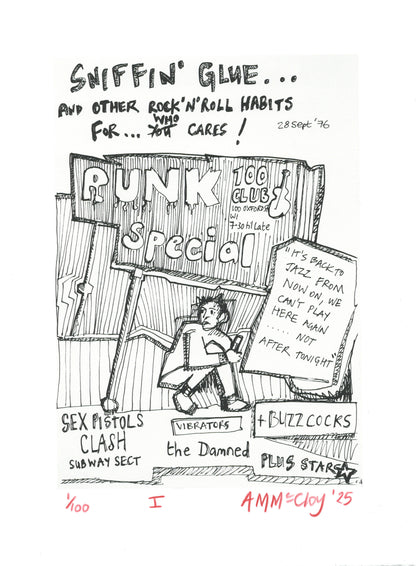 SNIFFIN' GLUE...
AND OTHER ROCK'N'ROLL HABITS
FOR... YOU WHO CARES!
28 Sept '76
PUNK
Special
100
CLUB
100 OXFORD ST
W1
7-30 til late
"IT'S BACK TO
JAZZ FROM
NOW ON, WE
CAN'T PLAY
HERE AGAIN
..... NOT
AFTER TONIGHT"
SEX PISTOLS
CLASH
SUBWAY SECT
VIBRATORS
the Damned
+ BUZZCOCKS
PLUS STARS
1/100
I
AMMcCloy '25